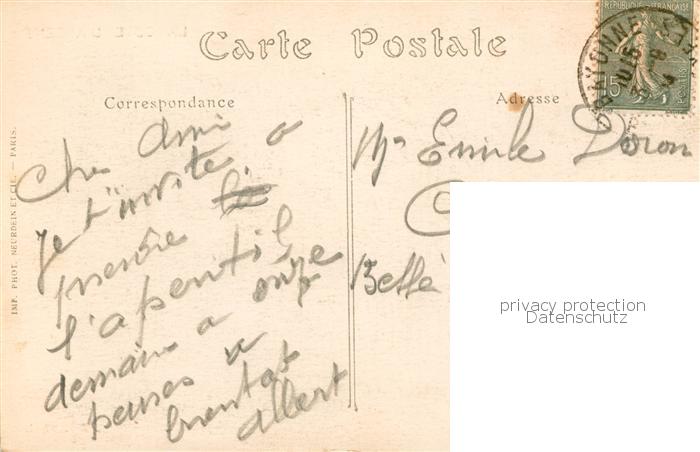 RÉPUBLIQUE FRANÇAISE
15
BAYONNE
Carte Postale
Correspondance
Adresse
Cher Ami
je t'invite a
prendre
l'aperitif
demain a onze
heures a
bientot
Albert
Mr Emile Doron
privacy protection
Datenschutz
IMP. PHOT. NEURDEIN ET CIE. — PARIS.